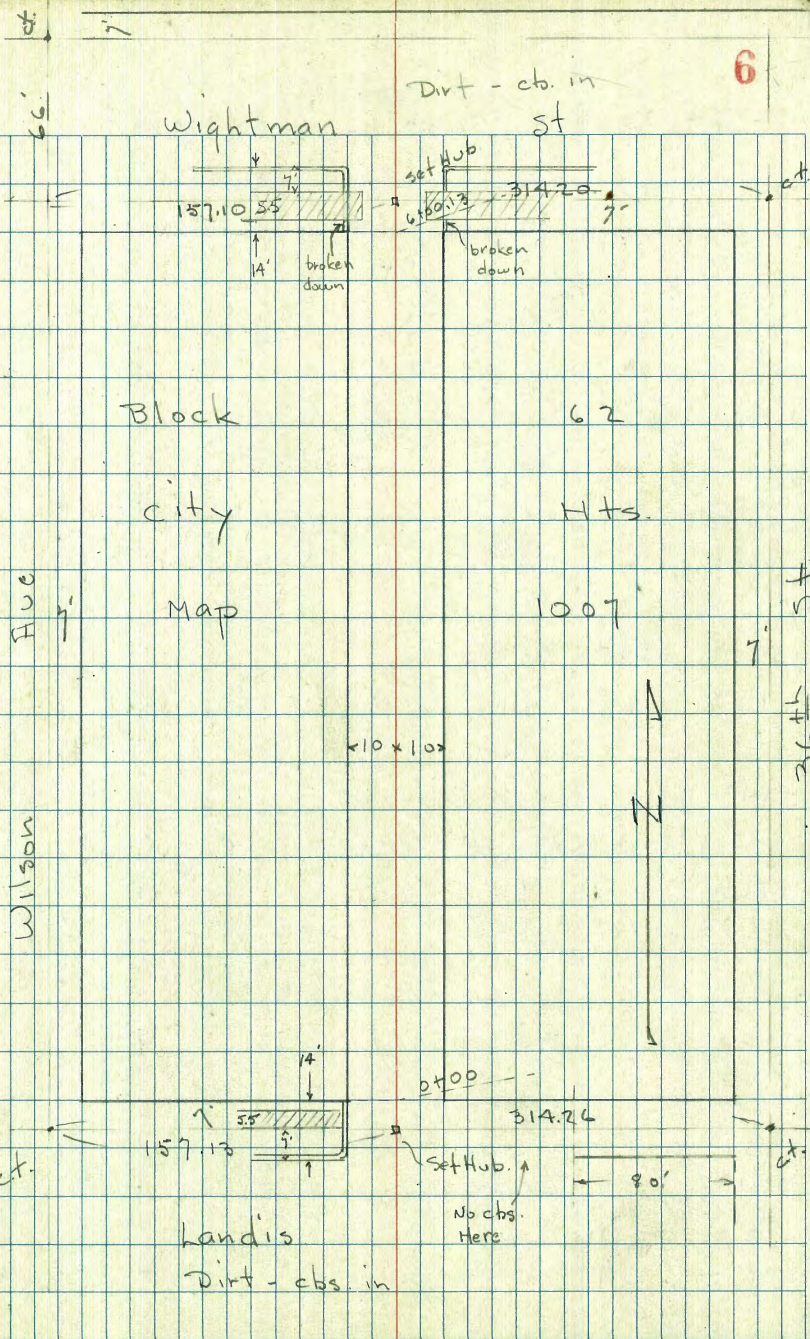 ct.
7'
66'
6
Dirt - cb. in
Wightman St
set Hub
7'
157.10 5.5
6+00.13
314.20
7'
ct.
14'
broken down
broken down
Block 62
City Hts.
Map 1007
Wilson Ave
7'
7'
36th St
10 x 10
N
14'
0+00
7'
5.5
314.26
157.13
7'
ct.
Set Hub.
ct.
80'
No cbs. Here
Landis
Dirt - cbs. in